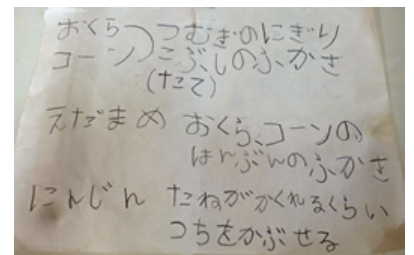 おくら つむぎのにぎり
コーン こぶしのふかさ
(たて)
えだまめ おくら、コーンの
はんぶんのふかさ
にんじん たねがかくれるくらい
つちをかぶせる